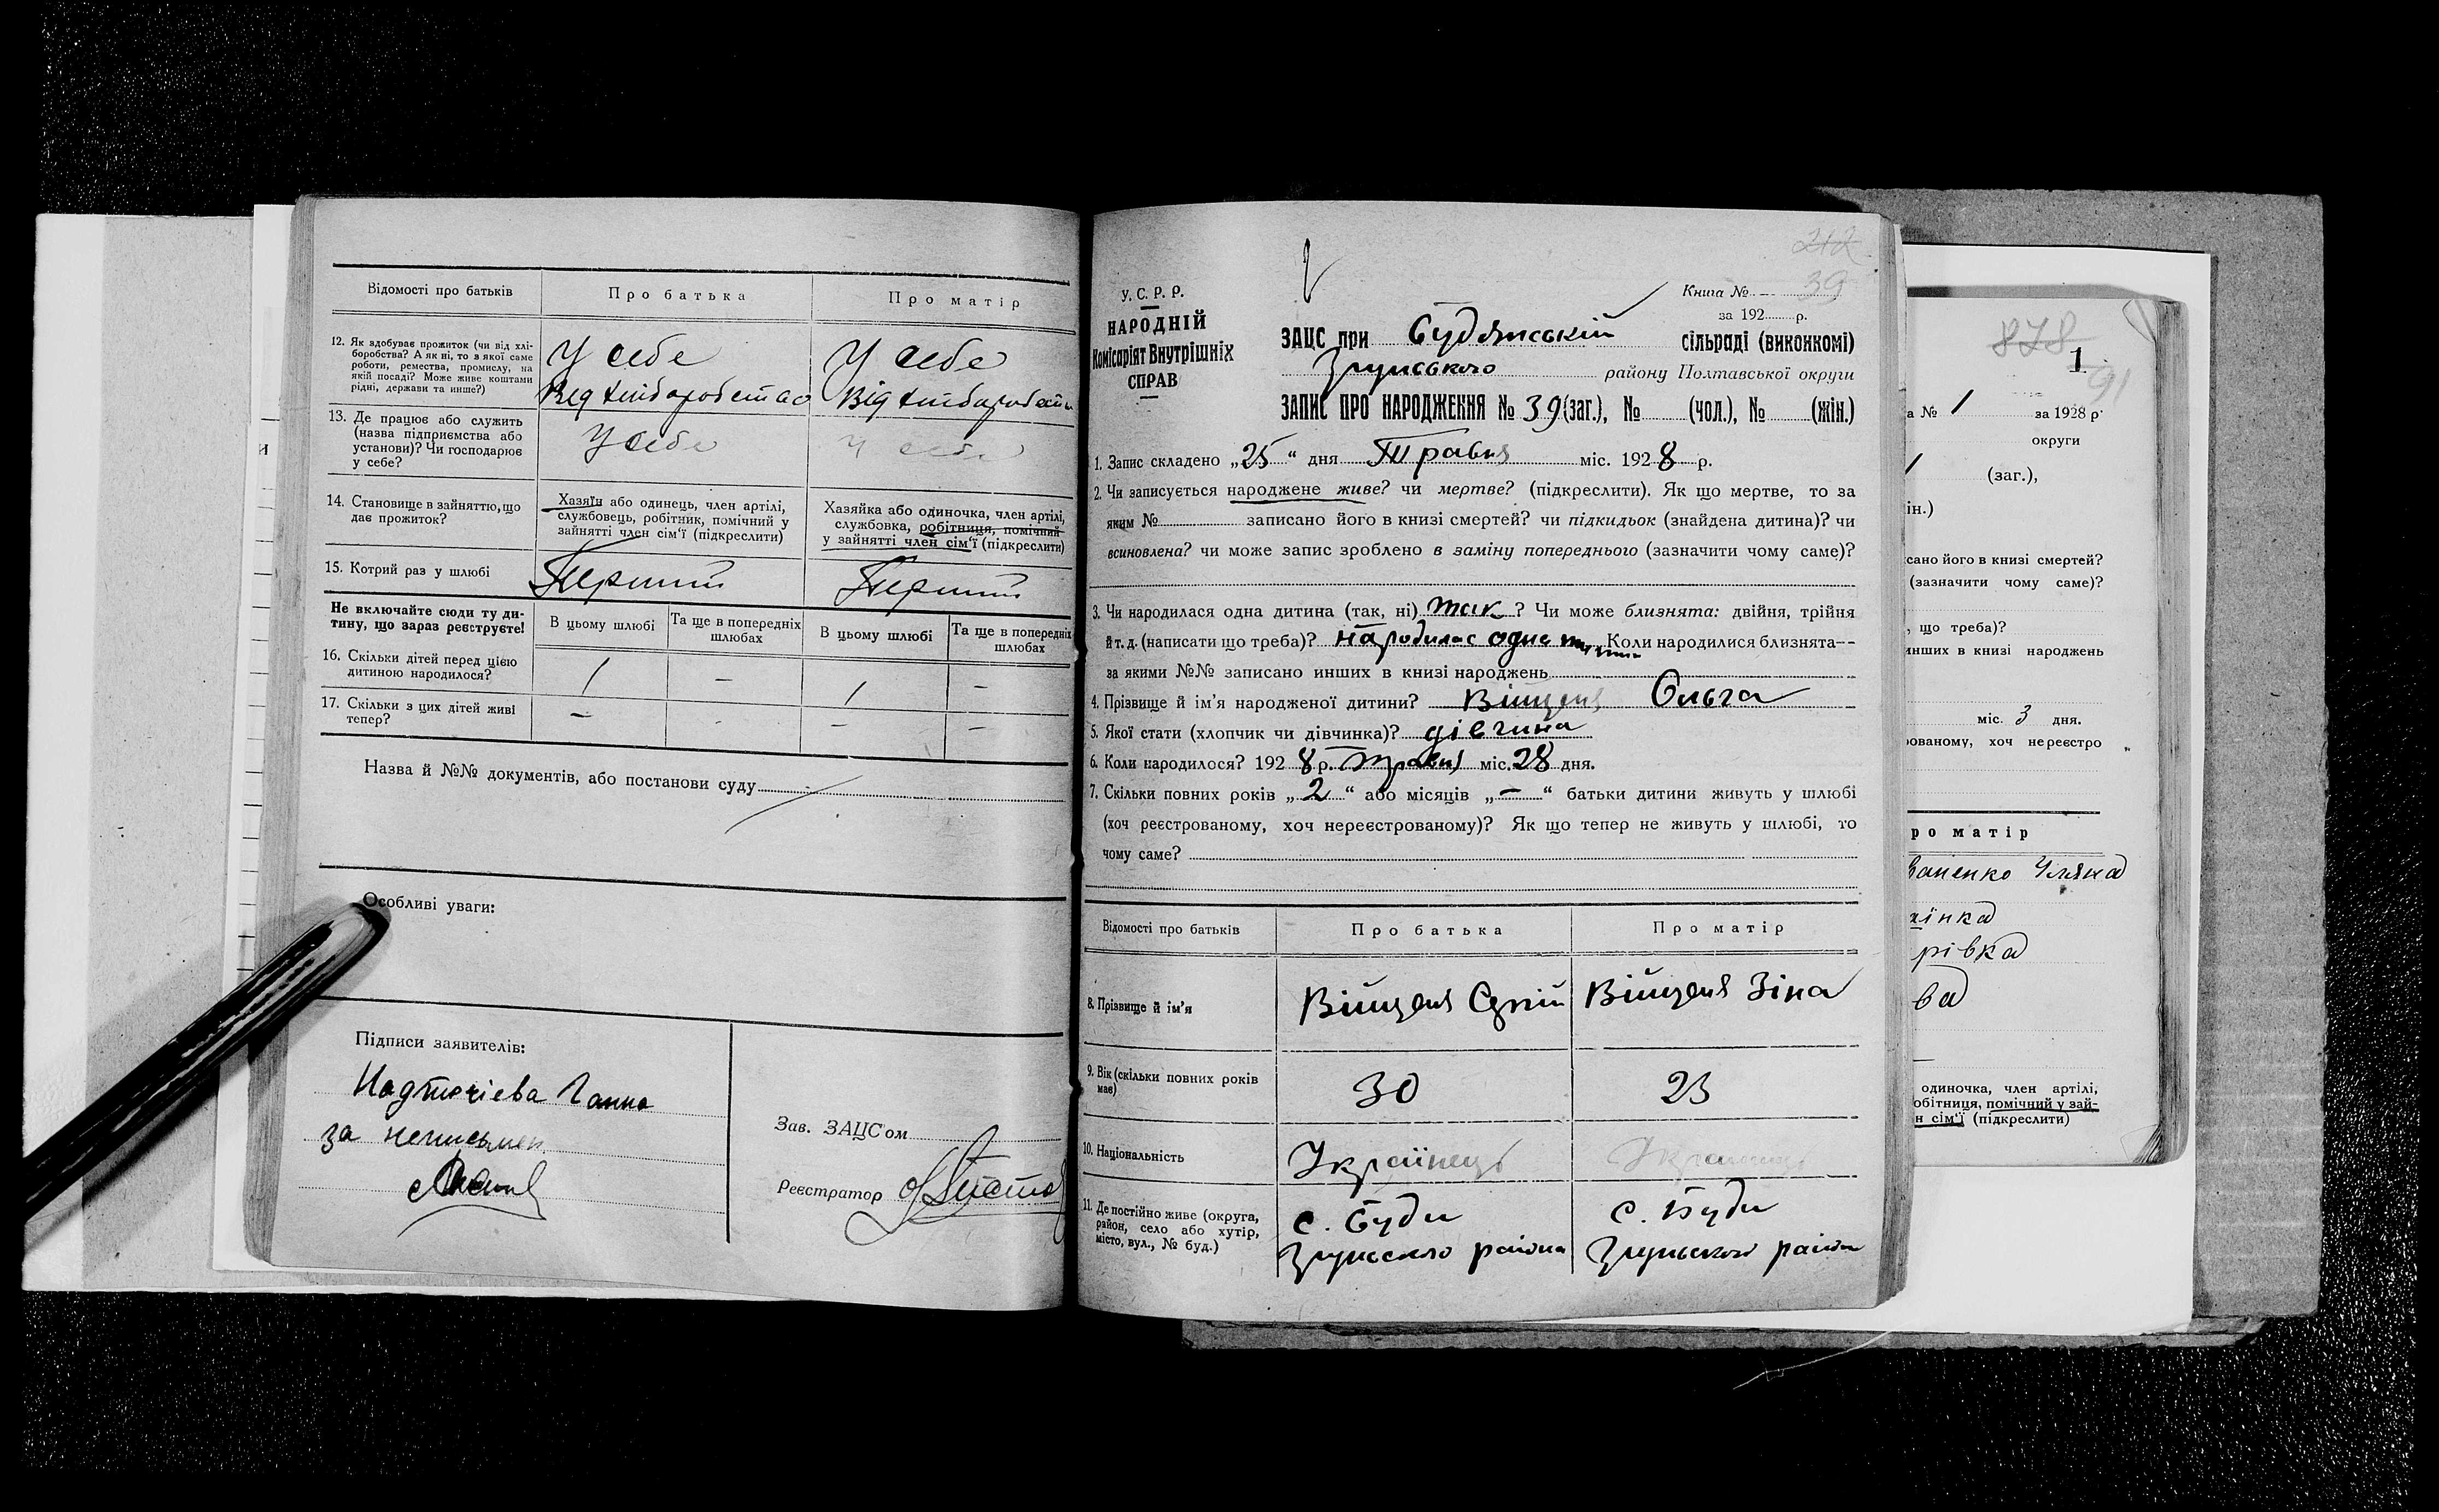 Відомості про батьків
Про батька
Про матір
12. Як здобуває прожиток (чи від хлі-
боробства? А як ні, то з якої саме
роботи, ремества, промислу, на
якій посаді? Може живе коштами
рідні, держави та инше?)
У себе
Від хліборобства
У себе
Від хліборобства
13. Де працює або служить
(назва підприємства або
установи)? Чи господарює
у себе?
У себе
У себе
14. Становище в зайняттю, що
дає прожиток?
Хазяїн або одинець, член артілі,
службовець, робітник, помічний у
зайнятті член сім'ї (підкреслити)
Хазяйка або одиночка, член артілі,
службовка, робітниця, помічний
у зайнятті член сім'ї (підкреслити)
15. Котрий раз у шлюбі
Перший
Перший
Не включайте сюди ту ди-
тину, що зараз реєструєте!
В цьому шлюбі
Та ще в попередніх
шлюбах
В цьому шлюбі
Та ще в попередніх
шлюбах
16. Скільки дітей перед цією
дитиною народилося?
1 - 1 -
17. Скільки з цих дітей живі
тепер?
- - - -
Назва й №№ документів, або постанови суду
Особливі уваги:
Підписи заявителів:
Надточієва Ганна
за неписьмен.
Зав. ЗАЦС'ом
Реєстратор
212
39
У. С. Р. Р.
НАРОДНІЙ
Комісаріят Внутрішніх
СПРАВ
Книга №
за 192 р.
ЗАЦС при Будянській сільраді (виконкомі)
району Полтавської округи
ЗАПИС ПРО НАРОДЖЕННЯ № 39 (заг.), № (чол.), № (жін.)
1. Запис складено „25“ дня Травня міс. 1928 р.
2. Чи записується народжене живе? чи мертве? (підкреслити). Як що мертве, то за
яким № записано його в книзі смертей? чи підкидьок (знайдена дитина)? чи
всиновлена? чи може запис зроблено в заміну попереднього (зазначити чому саме)?
3. Чи народилася одна дитина (так, ні) так? Чи може близнята: двійня, трійня
й т. д. (написати що треба)? народилас одна Коли народилися близнята—
за якими №№ записано инших в книзі народжень
4. Прізвище й ім'я народженої дитини? Ольга
5. Якої стати (хлопчик чи дівчинка)? дівчина
6. Коли народилося? 1928 р. травня міс. 28 дня.
7. Скільки повних років „2“ або місяців „—“ батьки дитини живуть у шлюбі
(хоч реєстрованому, хоч нереєстрованому)? Як що тепер не живуть у шлюбі, то
чому саме?
Відомості про батьків
Про батька
Про матір
8. Прізвище й ім'я
Зіна
9. Вік (скільки повних років
має)
30
23
10. Національність
Українець
11. Де постійно живе (округа,
район, село або хутір,
місто, вул., № буд.)
с. Буди
района
с. Буди
район
878
1
91
а № 1 за 1928 р.
округи
(заг.),
ін.)
сано його в книзі смертей?
(зазначити чому саме)?
, що треба)?
инших в книзі народжень
міс. 3 дня.
ованому, хоч нереєстро
ро матір
Уляна
їнка
рівка
ва
одиночка, член артілі,
обітниця, помічний у зай-
н сім'ї (підкреслити)